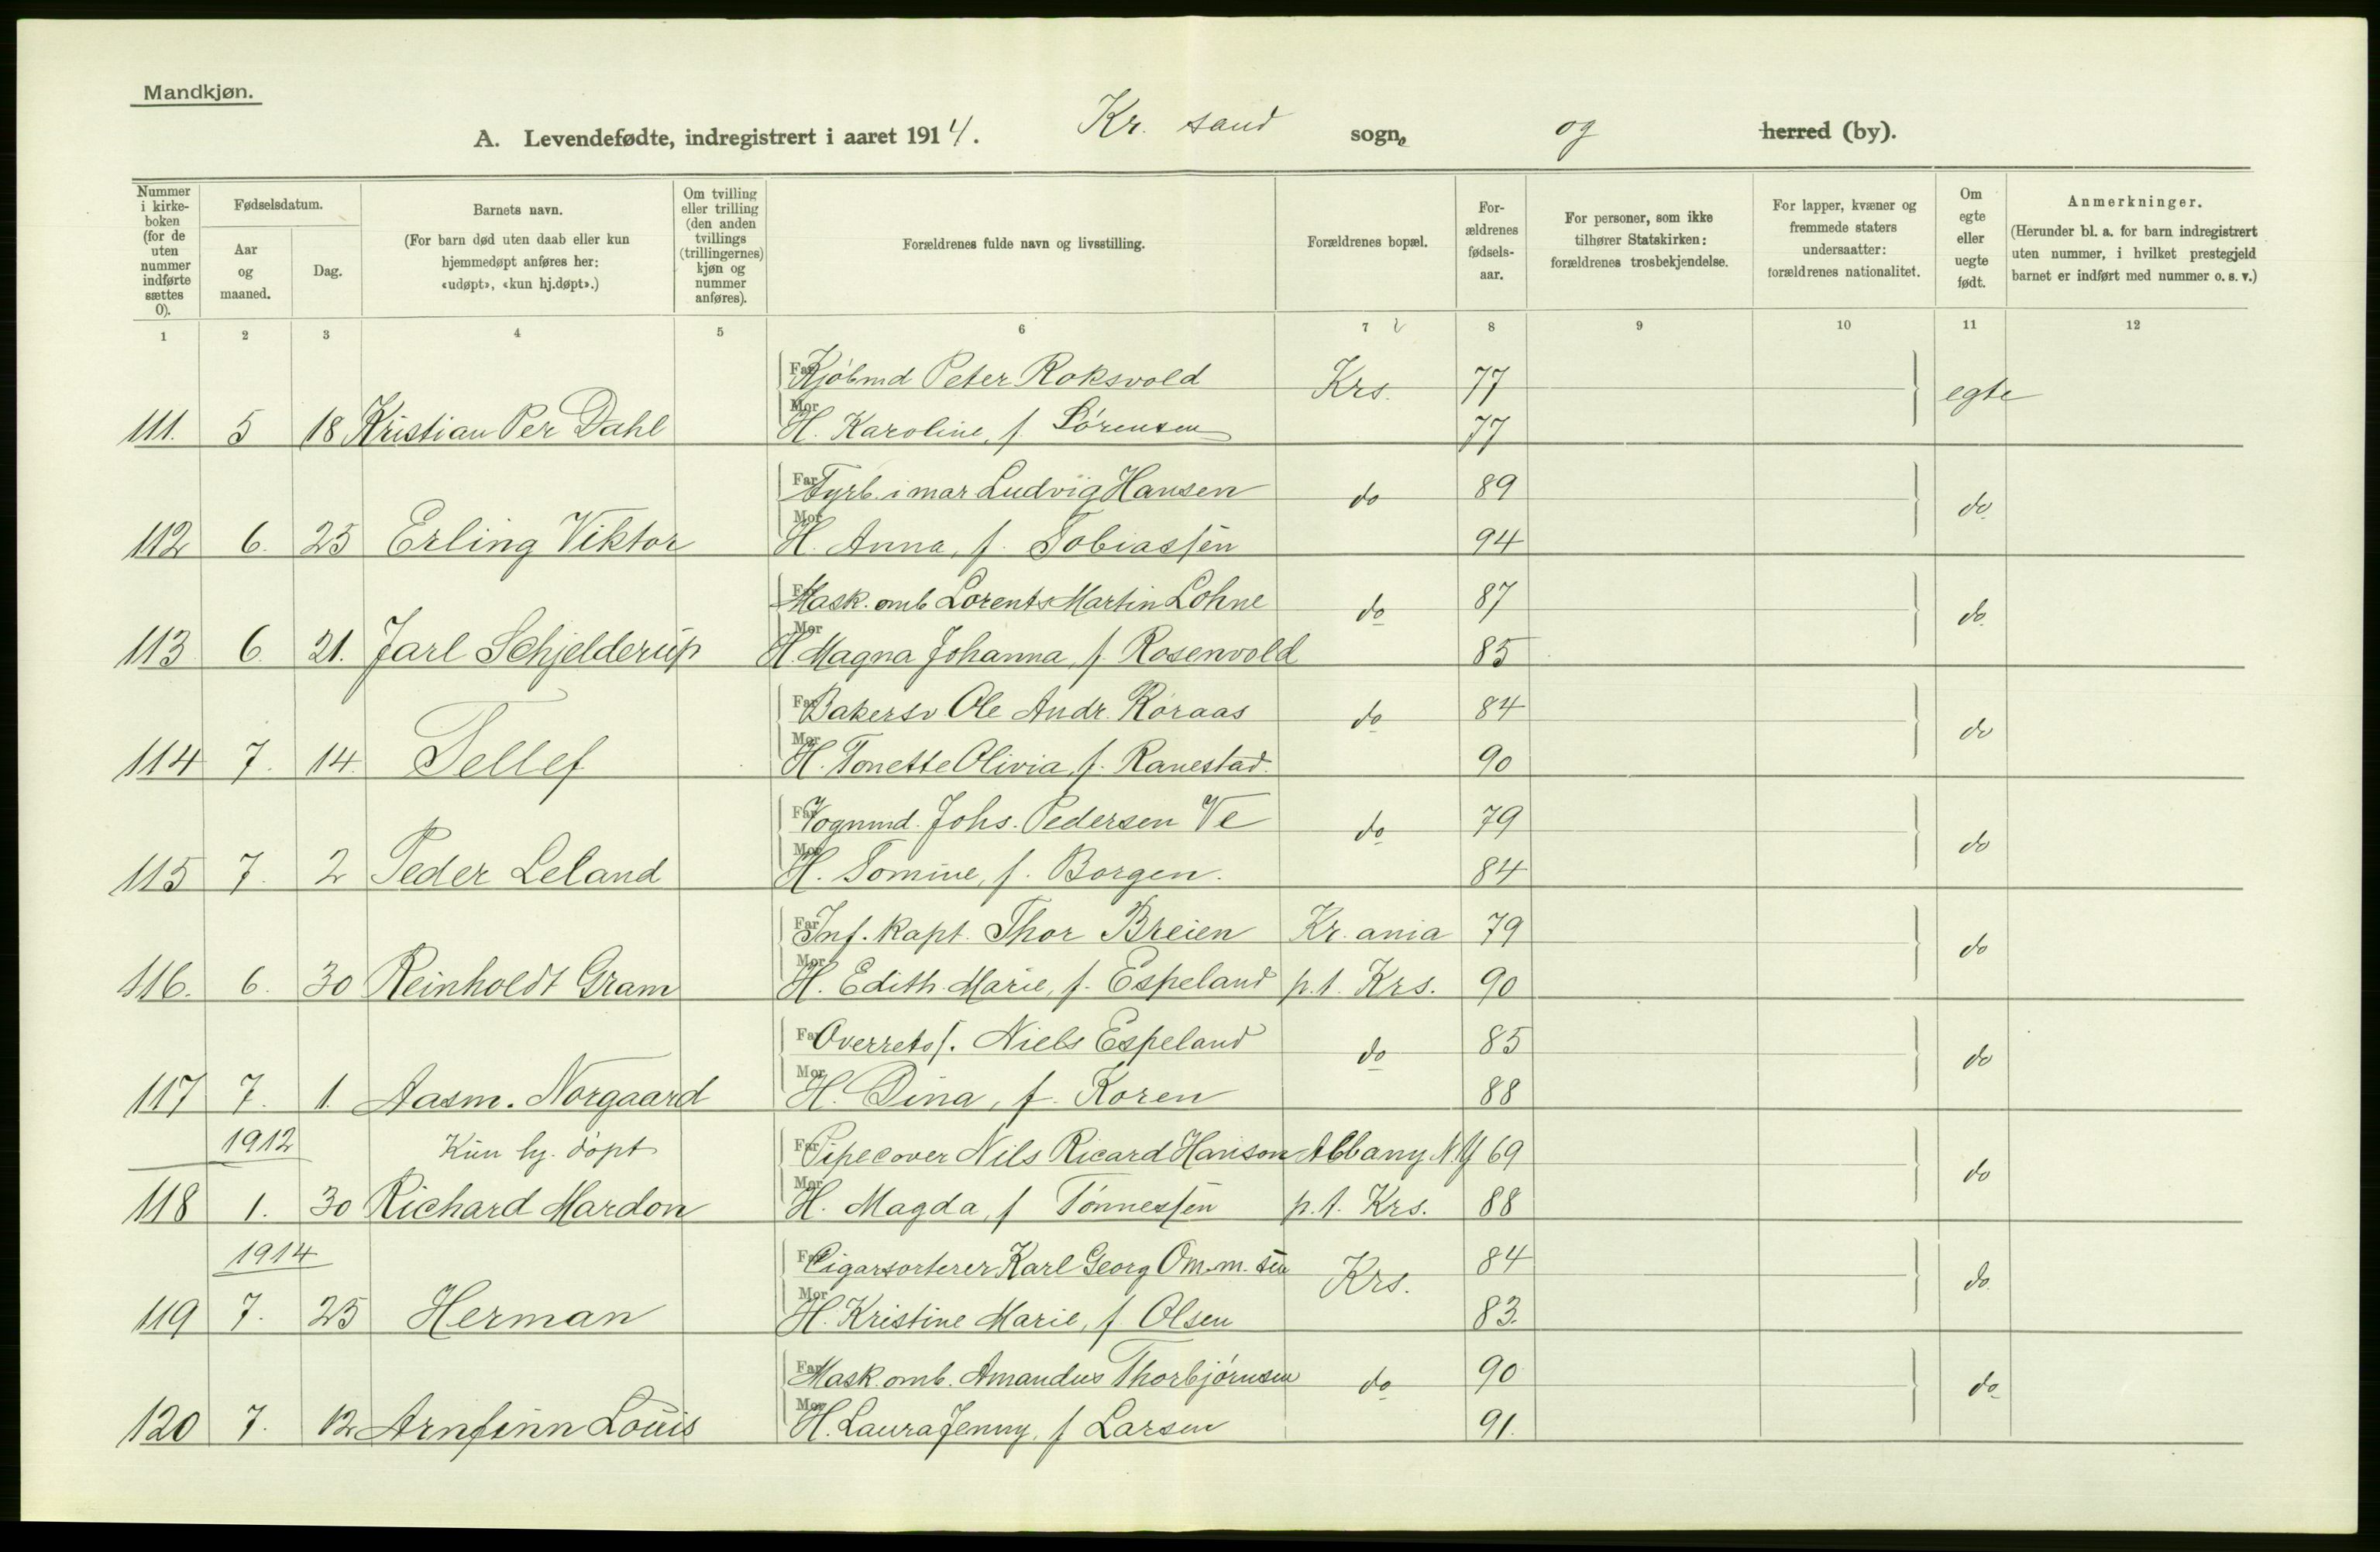 Mandkjøn.
A. Levendefødte, indregistrert i aaret 1914. Kr. sand sogn og herred (by).
Nummer i kirke-boken (for de uten nummer indførte sættes 0).
Fødselsdatum.
Aar og maaned.
Dag.
Barnets navn.
(For barn død uten daab eller kun hjemmedøpt anføres her: «udøpt», «kun hj.døpt».)
Om tvilling eller trilling (den anden tvillings (trillingernes) kjøn og nummer anføres).
Forældrenes fulde navn og livsstilling.
Forældrenes bopæl.
For-ældrenes fødsels-aar.
For personer, som ikke tilhører Statskirken: forældrenes trosbekjendelse.
For lapper, kvæner og fremmede staters undersaatter: forældrenes nationalitet.
Om egte eller uegte født.
Anmerkninger.
(Herunder bl. a. for barn indregistrert uten nummer, i hvilket prestegjeld barnet er indført med nummer o. s. v.)
1 2 3 4 5 6 7 8 9 10 11 12
Far Kjøbmd Peter Roksvold Krs. 77 egte
111. 5 18 Kristian Per Dahl Mor H. Karoline, f. Sörensen 77
Far Fyrb. i mar Ludvig Hansen do 89 do
112 6. 25 Erling Viktor Mor H. Anna, f. Tobiassen 94
Far Mask. omb Lorents Martin Lohne do 87 do
113 6 21. Jarl Schjelderup Mor H. Magna Johanna, f. Rosenvold 85
Far Bakersv Ole Andr. Röraas do 84 do
114 7. 14. Tellef Mor H. Tonette Olivia, f. Ranestad. 90
Far Vognmd. Johs. Pedersen Ve do 79 do
115 7. 2 Peder Leland Mor H. Tomine, f. Borgen. 84
Far Inf. kapt. Thor Breien Kr. ania 79 do
116. 6. 30 Reinholdt Gram Mor H. Edith Marie, f. Espeland p.t. Krs. 90
Far Overretss. Niels Espeland do 85 do
117 7. 1. Aasm. Norgaard Mor H. Dina, f. Koren 88
1912 Kun hj. döpt Far Pipecover Nils Ricard Hanson Albany N.Y 69 do
118 1. 30 Richard Mardon Mor H. Magda, f Tönnessen p.t. Krs. 88
1914 Far Cigarsorterer Karl Georg Omm. sen Krs. 84 do
119 7. 25 Herman Mor H. Kristine Marie, f Olsen 83.
Far Mask. omb. Amandus Thorbjörnsen do 90 do
120 7. 12 Arnfinn Louis Mor H. Laura Jenny, f Larsen 91.